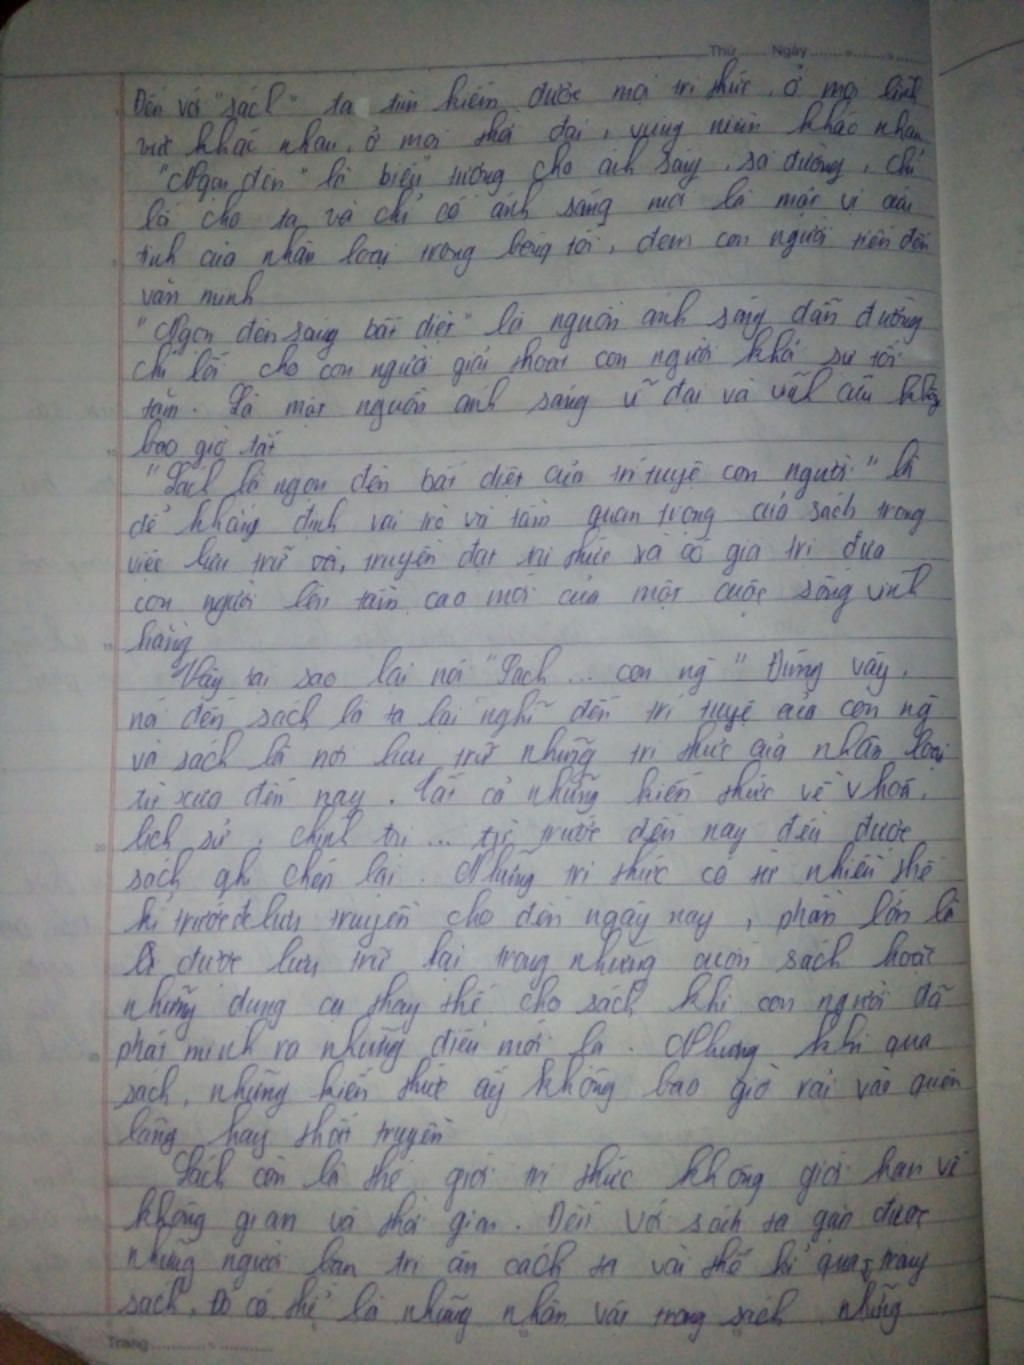 Thứ ........ Ngày ........
Đến với "sách" ta tìm kiếm được mọi tri thức, ở mọi lĩnh
vực khác nhau, ở mọi thời đại, vùng miền khác nhau
"Ngọn đèn" là biểu tượng cho ánh sáng, soi đường, chỉ
lối cho ta và chỉ có ánh sáng mới là mặc vị cứu
tinh của nhân loại trong bóng tối, đem con người tiến đến
văn minh
"Ngọn đèn sáng bất diệt" là nguồn ánh sáng dẫn đường
chỉ lối cho con người giải thoát con người khỏi sự tối
tăm. Là một nguồn ánh sáng vĩ đại và vĩnh cửu không
bao giờ tắt
"Sách là ngọn đèn bất diệt của trí tuệ con người" là
để khẳng định vai trò và tầm quan trọng của sách trong
việc lưu trữ và, truyền đạt tri thức và có giá trị đưa
con người lên tầm cao mới của một cuộc sống vĩnh
hằng
Vậy tại sao lại nói "Sách ... con ng" Đúng vậy,
nói đến sách là ta lại nghĩ đến trí tuệ của con ng
và sách là nơi lưu trữ những tri thức của nhân loại
từ xưa đến nay. Tất cả những kiến thức về vhoá,
lịch sử, chính trị ... từ trước đến nay đều được
sách ghi chép lại. Những tri thức có từ nhiều thế
kỉ trước để lưu truyền cho đến ngày nay, phần lớn là
là được lưu trữ lại trong những cuốn sách hoặc
những dụng cụ thay thế cho sách khi con người đã
phát minh ra những điều mới lạ. Nhưng khi qua
sách, những kiến thức ấy không bao giờ rơi vào quên
lãng hay thất truyền
Sách còn là thế giới tri thức không giới hạn về
không gian và thời gian. Đến với sách ta gặp được
những người bạn tri ân cách ta vài thế kỉ qua trang
sách. Đó có thể là những nhân vật trong sách những
Trang ........